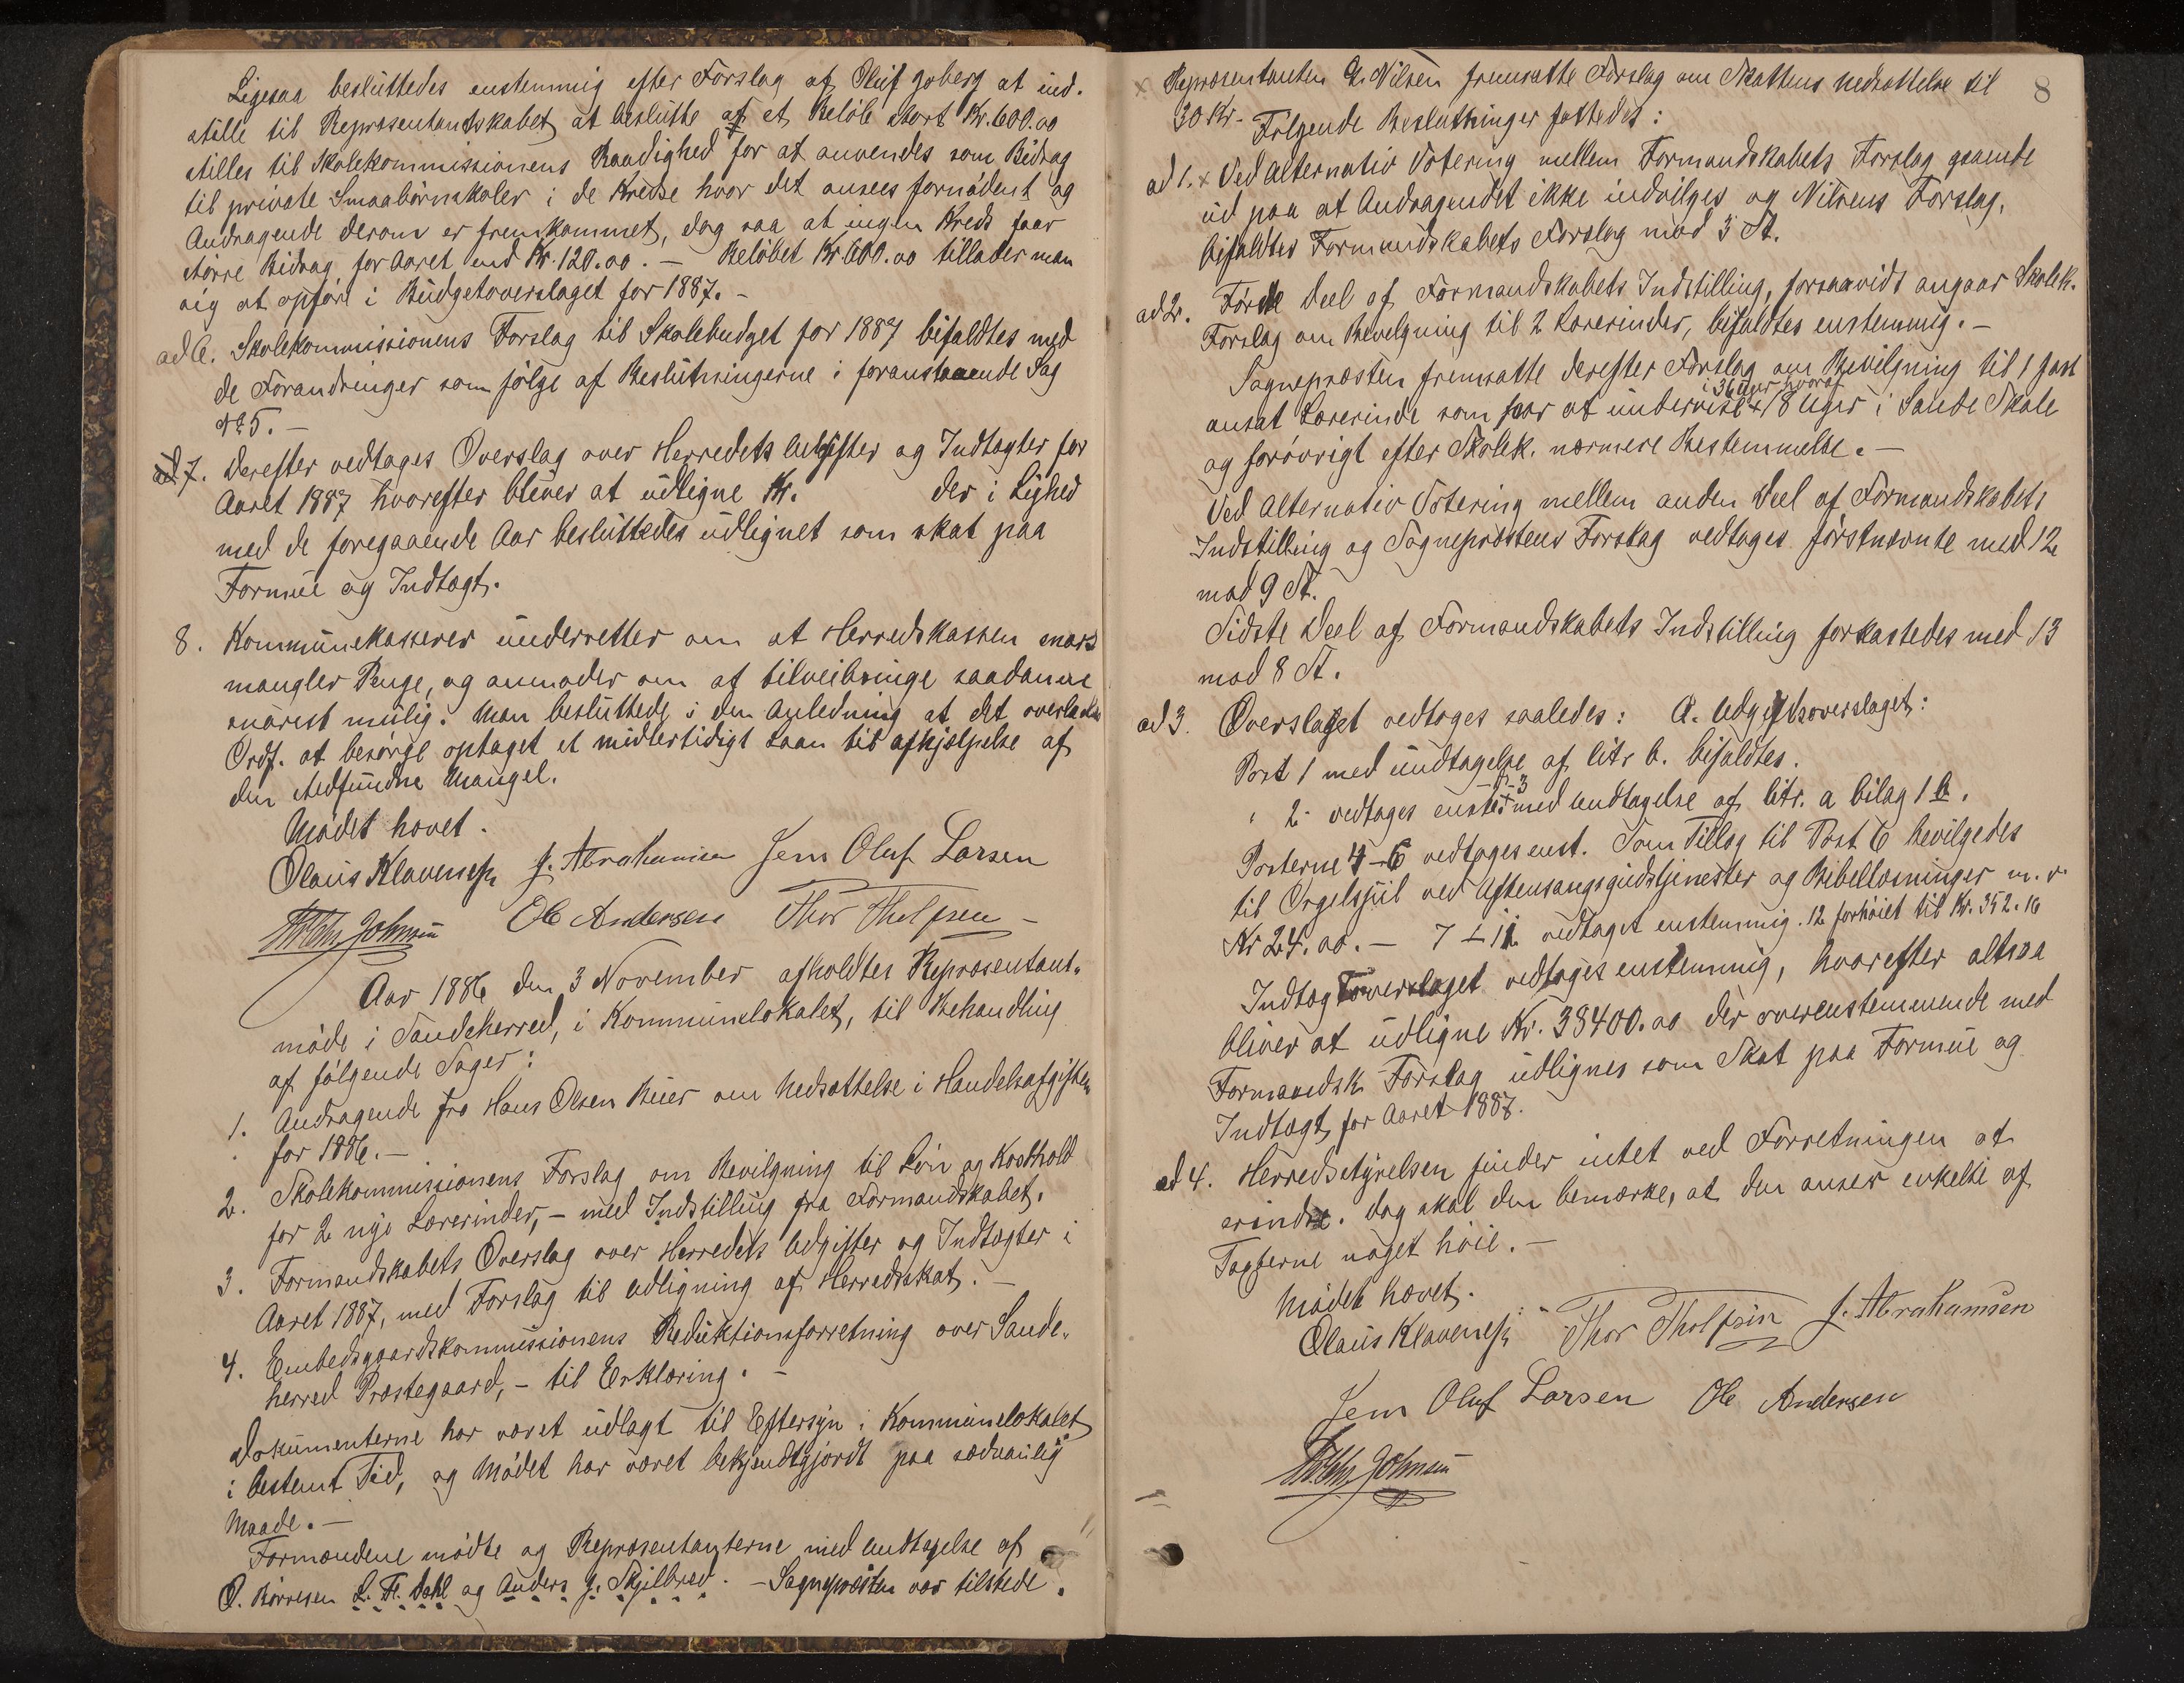 Ligesaa besluttedes enstemmig efter Forslag af Oluf Goberg at ind-
stille til Repræsentantskabet at beslutte at et Beløb stort Kr. 600.00
stilles til Skolekommissionens Raadighed for at anvendes som Bidrag
til private Smaabørnskoler i de Kredse hvor det ansees fornødent og
Andragende derom er fremkommet, dog saa at ingen Kreds faar
større Bidrag for Aaret end Kr. 120.00. — Beløbet Kr 600.00 tillader man
sig at opføre i Budgetoverslaget for 1887. -
ad 6. Skolekommissionens Forslag til Skolebudget for 1887 bifaldtes med
de Forandringer som følge af Beslutningerne i foranstaaende Sag
No 5. -
ad 7. Derefter vedtages Overslag over Herredets Udgifter og Indtægter for
Aaret 1887 hvorefter bliver at udligne Kr. der i Lighed
med de foregaaende Aar besluttedes udlignet som skat paa
Formue og Indtægt.
8. Kommunekasserer underretter om at Herredskassen snart
mangler Penge, og anmoder om at tilveibringe saadanne
snarest mulig. Man besluttede i den Anledning at det overlades
Ordf. at besørge optaget et midlertidigt Laan til afhjælpelse af
den stedfundne Mangel.
Mødet hævet.
Olaus Klavenesss J. Abrahamsen Jens Oluf Larsen
Ole Andersen Thor Tholfsen
Johnsen
Aar 1886 den 3 November afholdtes Repræsentant-
møde i Sandeherred, i Kommunelokalet, til Behandling
af følgende Sager:
1. Andragende fra Hans Olsen Buer om Nedsættelse i Handelsafgiften
for 1886. -
2. Skolekommissionens Forslag om Bevilgning til Løn og Kosthold
for 2 nye Lærerinder, - med Indstilling fra Formandskabet.
3. Formandskabets Overslag over Herredets Udgifter og Indtægter i
Aaret 1887, med Forslag til Udligning af Herredsskat. -
4. Embedsgaardskommissionens Reduktionsforretning over Sande-
herred Præstegaard, - til Erklæring. -
Dokumenterne har været udlagt til Eftersyn i Kommunelokalet
i bestemt Tid, og Mødet har været bekjendtgjordt paa sædvanlig
Maade. -
Formændene mødte og Repræsentanterne med Undtagelse af
O. Børresen L. Fr. Dahl og Anders J. Skjelbred. - Sognepræsten var tilstede.
8
x Repræsentanten A. Nilsen fremsatte Forslag om Skattens nedsættelse til
30 Kr- Følgende Beslutninger fattedes:
ad 1. x Ved Alternativ Votering mellem Formandskabets Forslag gaaende
ud paa at Andragendet ikke indvilges og Nilsens Forslag,
bifaldtes Formandskabets Forslag mod 3 St.
ad 2. Første Deel af Formandskabets Indstilling, forsaavidt angaar Skolek.
Forslag om Bevilgning til 2 Lærerinder, bifaldtes enstemmig. -
Sognepræsten fremsatte derefter Forslag om Bevilgning til 1 fast
i 36 Uger hvoraf
ansat Lærerinde som faar at undervise + 18 Uger i Sande Skole
og forøvrigt efter Skolek. nærmere Bestemmelse. -
Ved Alternativ Votering mellem anden Deel af Formandskabets
Indstilling og Sognepræstens Forslag vedtages førstnævnte med 12
mod 9 St.
Sidste Deel af Formandskabets Indstilling forkastedes med 13
mod 8 St.
ad 3. Overslaget vedtages saaledes: A. Udgiftsoverslaget:
Post 1 med undtagelse af litr b. bifaldtes.
" 2 - 3 vedtages enst. med Undtagelse af litr. a bilag 1 b.
Posterne 4-6 vedtages enst. Som Tillæg til Post 6 bevilgedes
til Orgelspil ved Aftensangsgudstjenester og Bibellæsninger m. v.
Kr 24.00. - 7 - 11 vedtaget enstemmig. 12 forhøiet til Kr. 352.16
Indtægtsoverslaget vedtages enstemmig, hvorefter altsaa
bliver at udligne Kr. 38400.00 der overenstemmende med
Formandsk. Forslag udlignes som Skat paa Formue og
Indtægt for Aaret 1887.
ad 4. Herredsstyrelsen finder intet ved Forretningen at
erindre. Dog skal den bemærke, at den anser enkelte af
Taxterne noget høie. -
Mødet hævet.
Olaus Klavenesss Thor Tholfsen J. Abrahamsen
Jens Oluf Larsen Ole Andersen
Johnsen